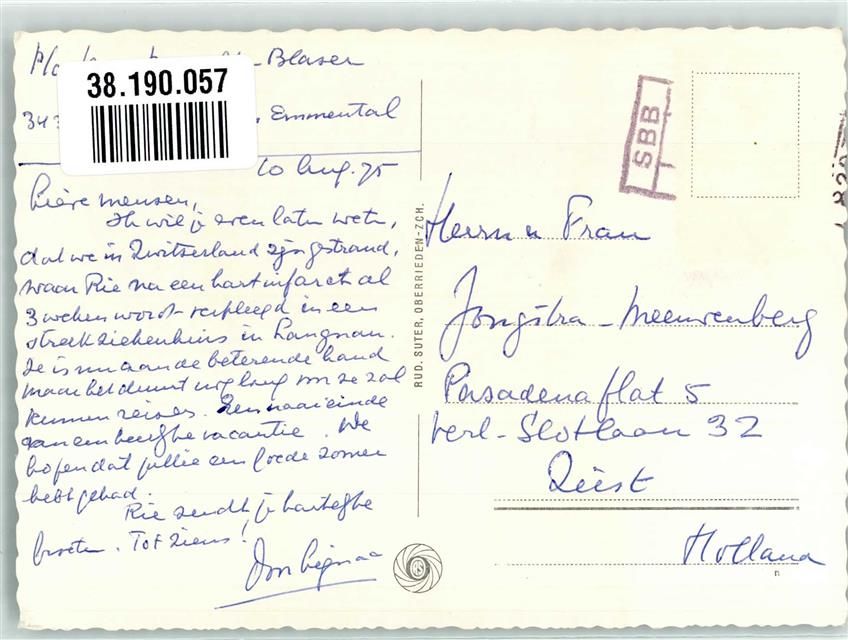 Blaser
38.190.057
Emmental
10 Aug. 75
Lieve mensen,
Ik wil je even laten weten,
dat we in Zwitserland zijn gestrand,
waar Rie na een hartinfarct al
3 weken wordt verpleegd in een
streekziekenhuis in Langnau.
Ze is nu aan de beterende hand
maar het duurt nog lang voor ze zal
kunnen reizen. Een naar einde
van een heerlijke vacantie. We
hopen dat jullie een goede zomer
hebt gehad.
Rie zendt je hartelijke
groeten. Tot ziens!
RUD. SUTER, OBERRIEDEN-ZCH.
SBB
Herrn u Frau
Jongstra-Meeuwenberg
Pasadenaflat 5
Verl-Slotlaan 32
Zeist
Holland